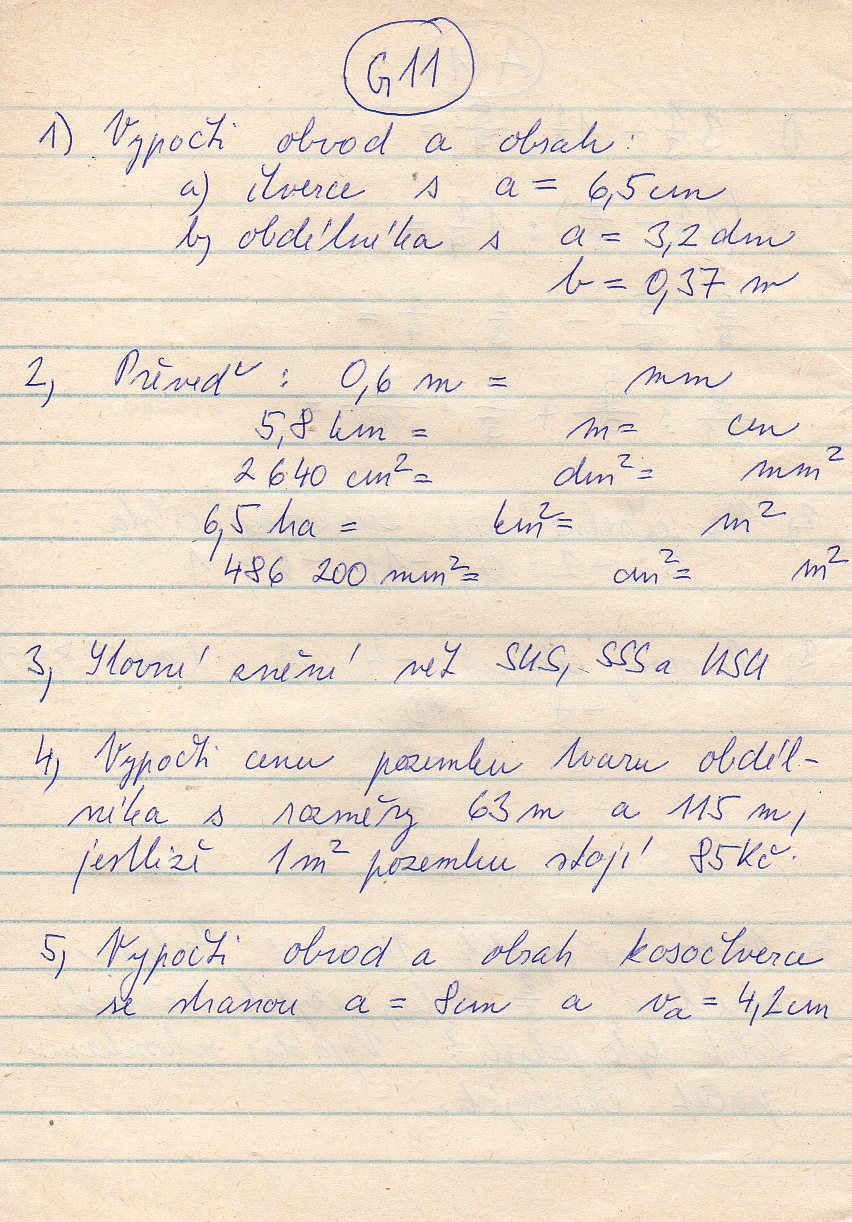 G11
1) Vypočti obvod a obsah:
a) čtverce s a = 6,5 cm
b) obdélníka s a = 3,2 dm
b = 0,37 m
2, Převeď: 0,6 m = mm
5,8 km = m = cm
2 640 cm² = dm² = mm²
6,5 ha = km² = m²
486 200 mm² = cm² = m²
3, Slovní znění vět SUS, SSS a USU
4, Vypočti cenu pozemku tvaru obdél-
níka s rozměry 63 m a 115 m,
jestliže 1 m² pozemku stojí 85 Kč.
5, Vypočti obvod a obsah kosočtverce
se stranou a = 8 cm a va = 4,2 cm